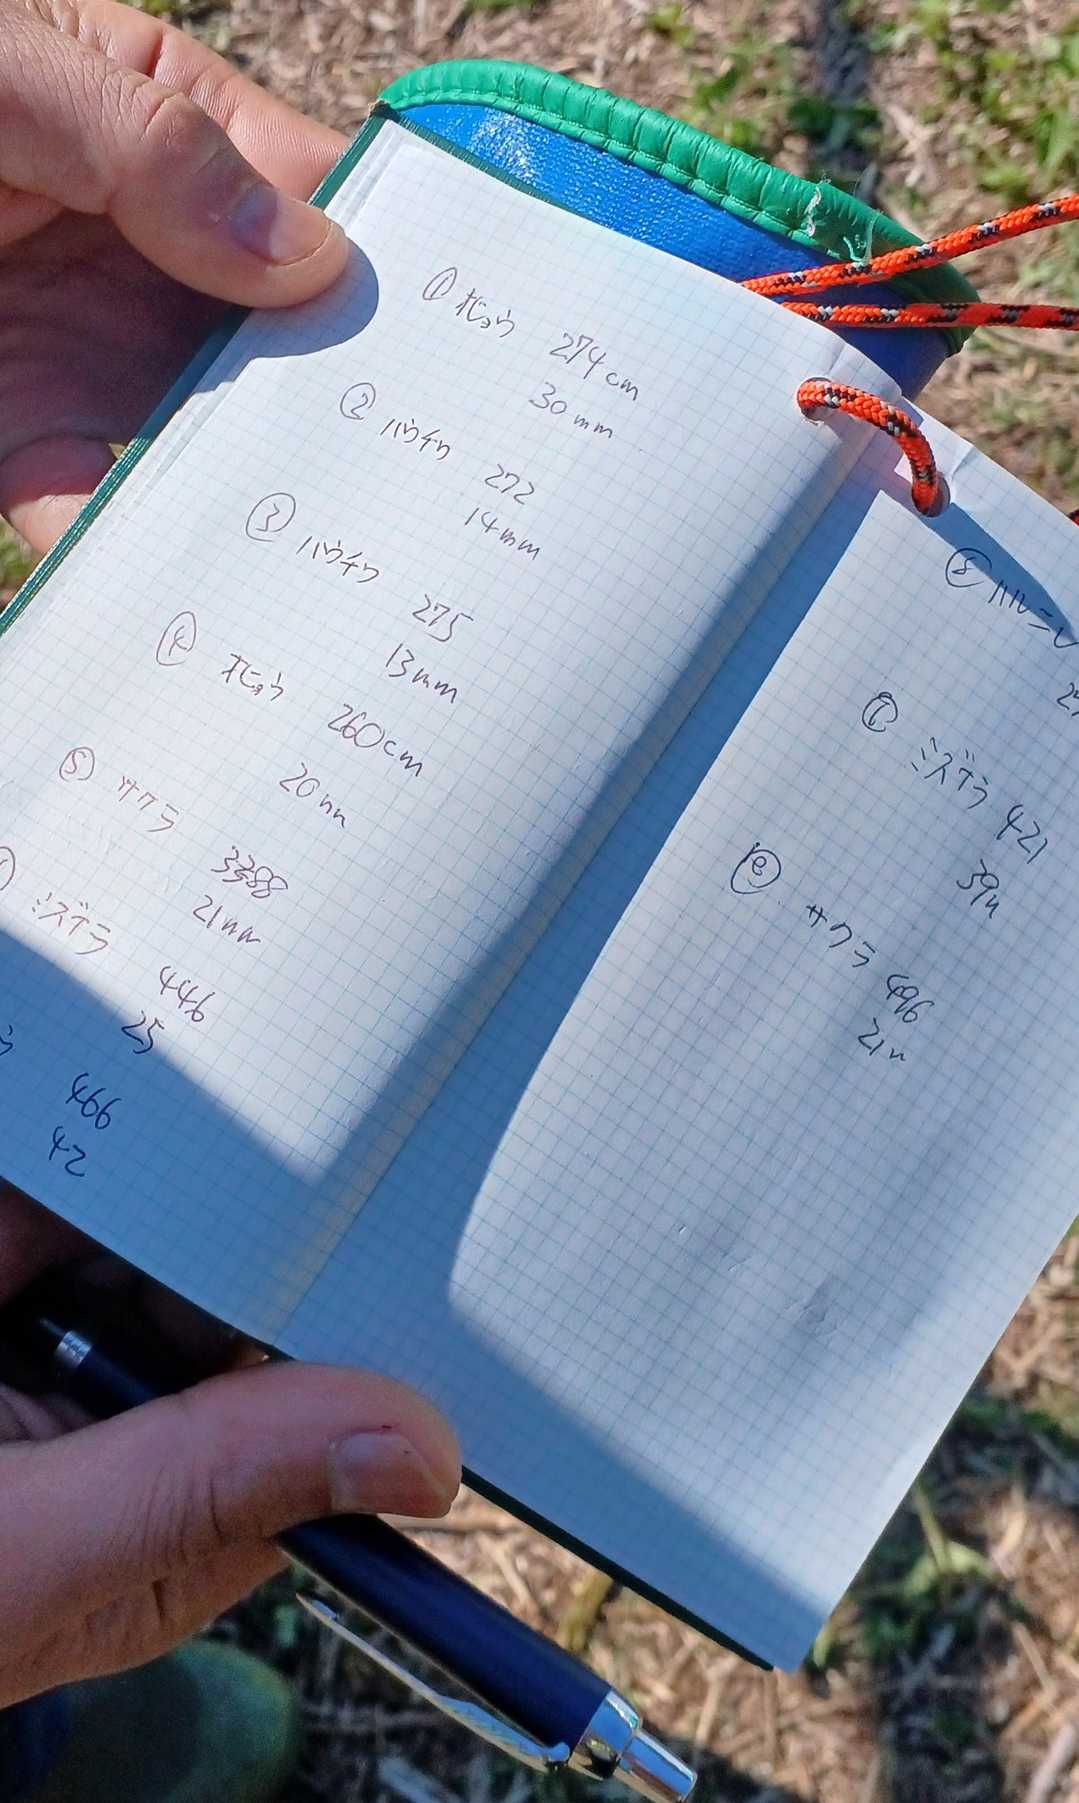 ① オヒョウ 274cm
30mm
② ハウチワ 272
14mm
③ ハウチワ 275
13mm
④ オヒョウ 260cm
20mm
⑤ サクラ 3388
21mm
ミズナラ 446
25
466
42
⑧ ハルニレ
ミズナラ 421
39m
サクラ 496
21m